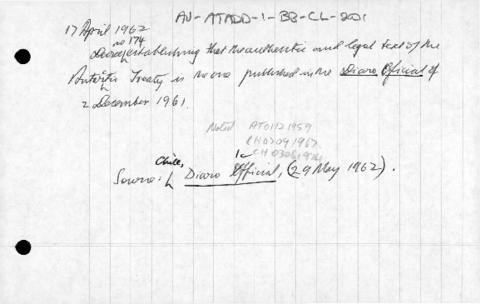 AU-ATADD-1-BB-CL-201
17 April 1962
no 174
Decree establishing that the authentic and legal text of the
Antarctic Treaty is the one published in the Diaro Oficial of
2 December 1961.
Noted AT01121959
CH02091967
CH0306
Chile,
Source: Diaro Official, (29 May 1962).